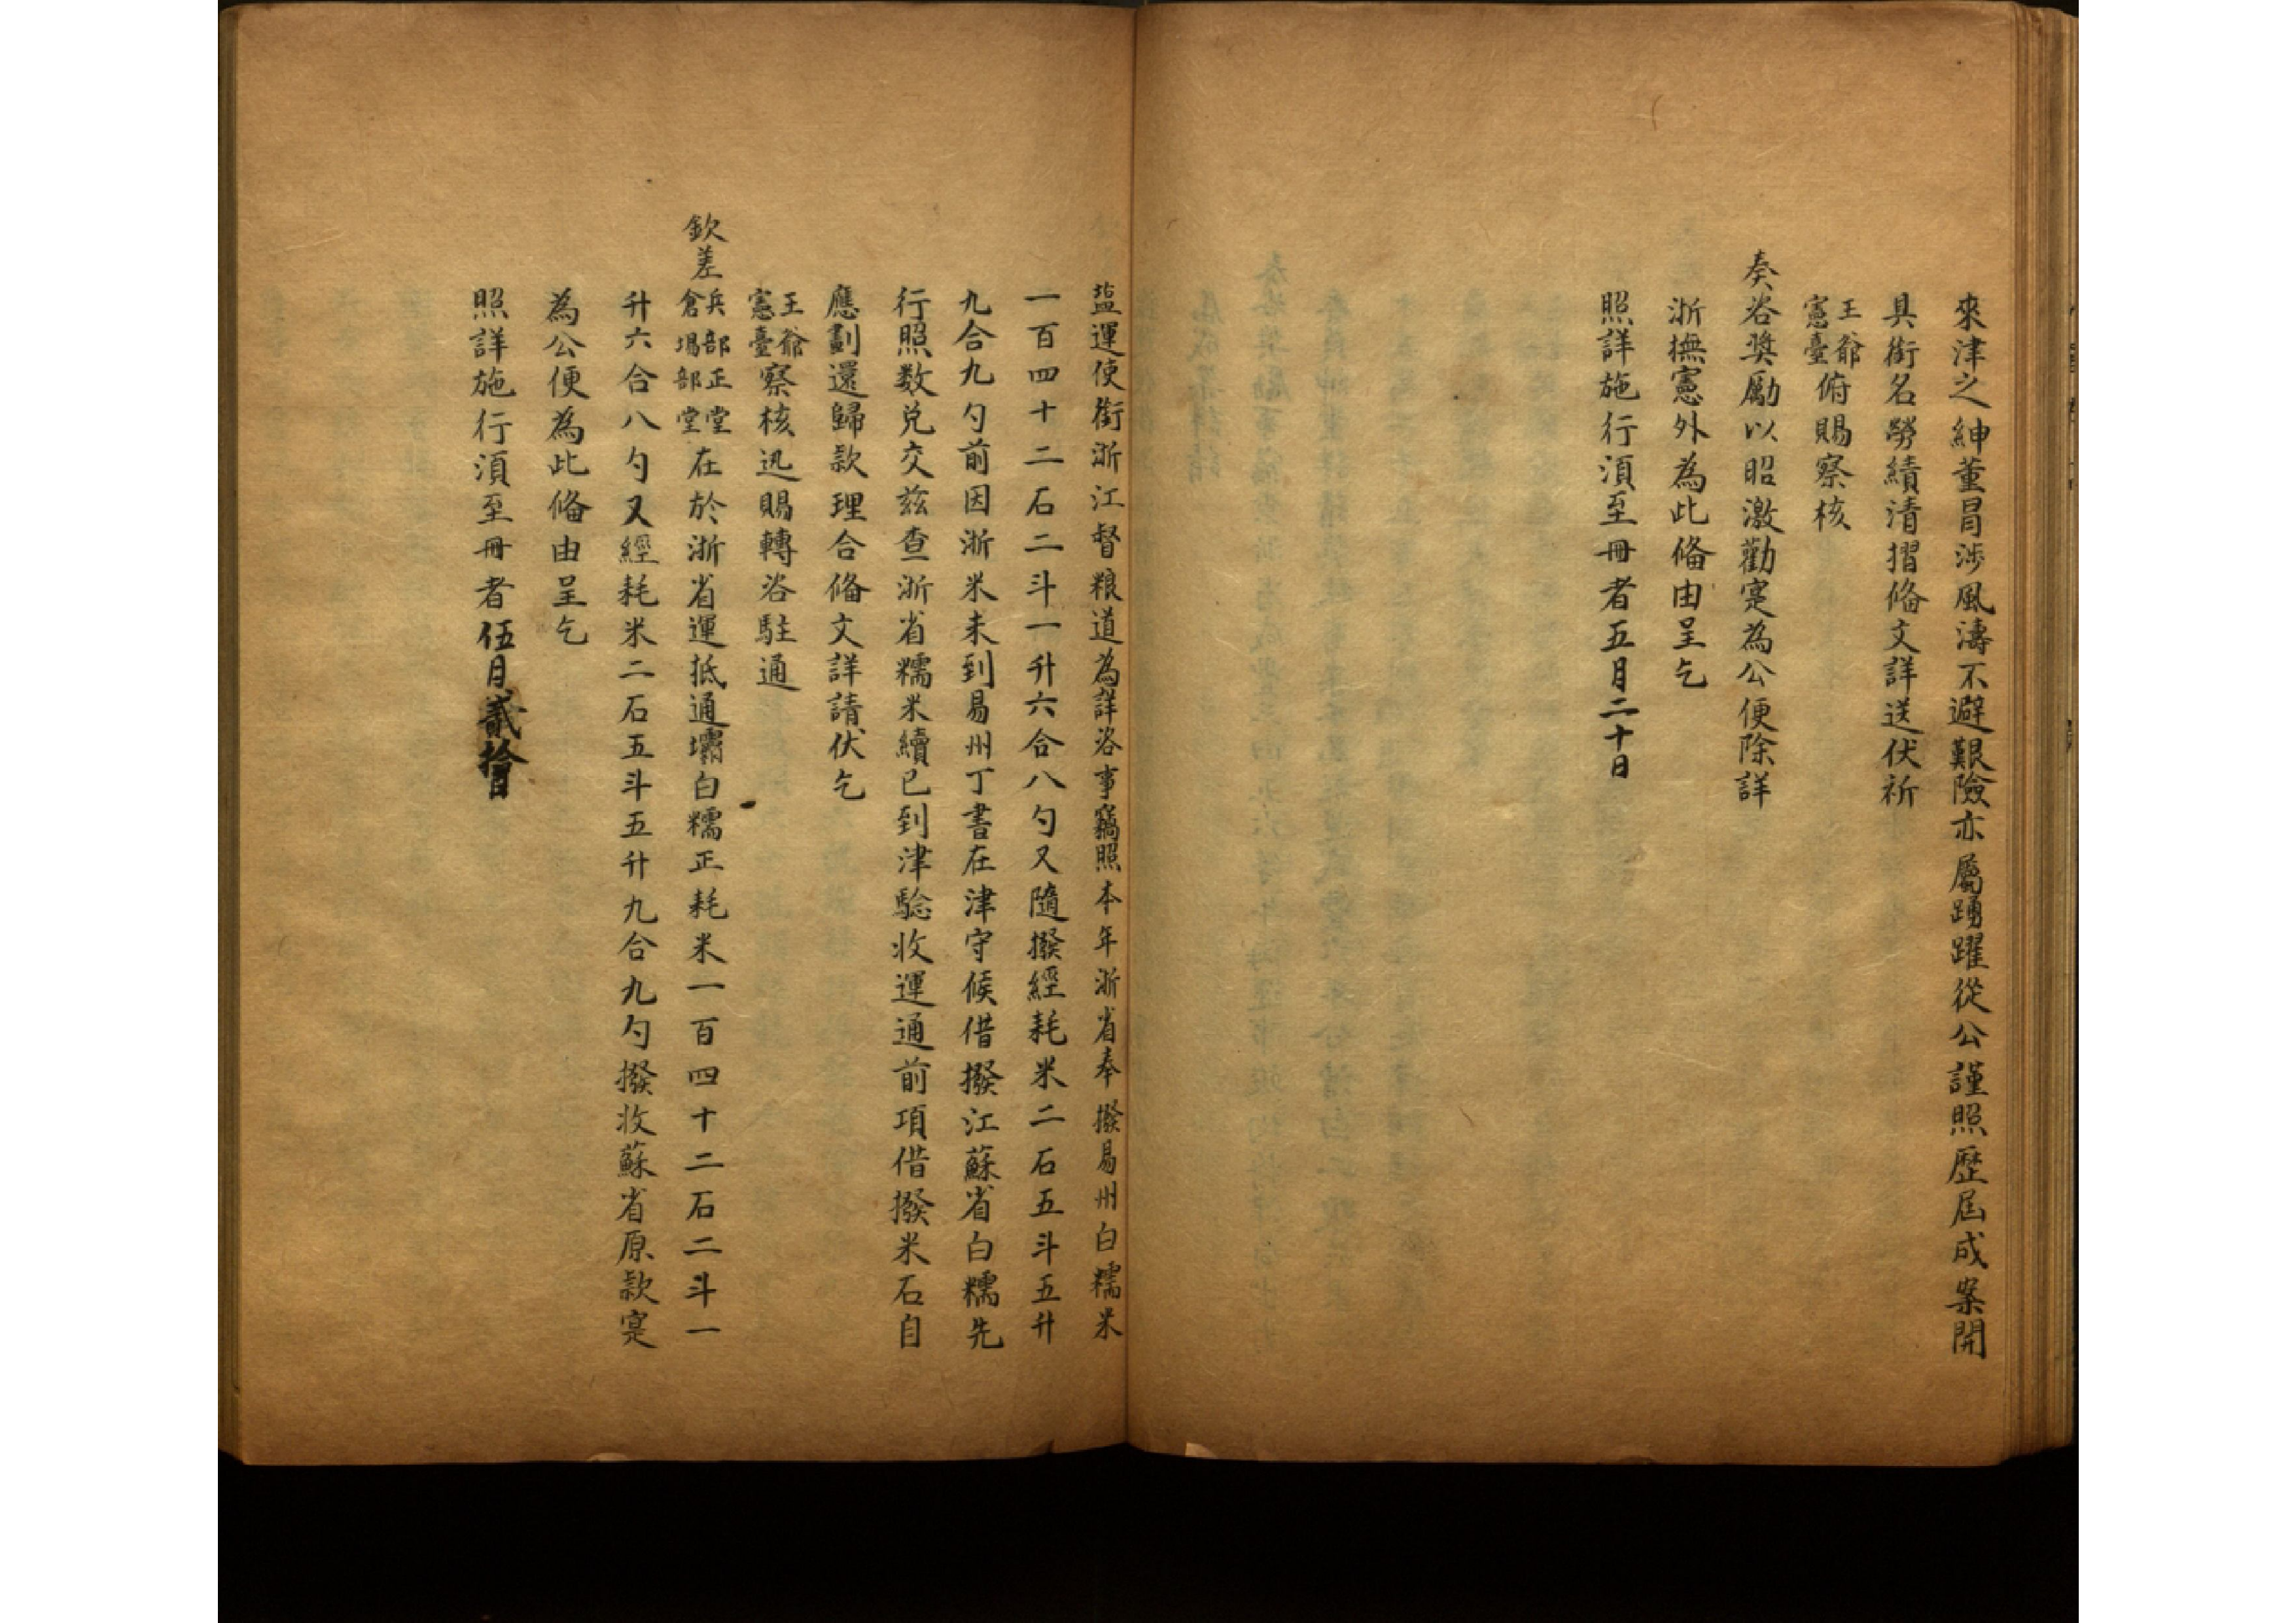 來津之紳董冒涉風濤不避艱險亦屬踴躍從公謹照歷屆成案開
具銜名勞績清摺俻文詳送伏祈
王爺
憲臺俯賜察核
奏咨奬勵以昭激勸寔為公便除詳
浙撫憲外為此俻由呈乞
照詳施行湏至冊者五月二十日
塩運使銜浙江督粮道為詳咨事竊照本年浙省奉撥易州白糯米
一百四十二石二斗一升六合八勺又隨撥經耗米二石五斗五升
九合九勺前因浙米未到易州丁書在津守候借撥江蘇省白糯先
行照数兑交兹查浙省糯米續已到津驗收運通前項借撥米石自
應劃還歸款理合俻文詳請伏乞
王爺
憲臺察核迅賜轉咨駐通
欽差兵部正堂
倉場部堂在於浙省運抵通壩白糯正耗米一百四十二石二斗一
升六合八勺又經耗米二石五斗五升九合九勺撥收蘇省原款寔
為公便為此俻由呈乞
照詳施行湏至冊者伍月貳拾日